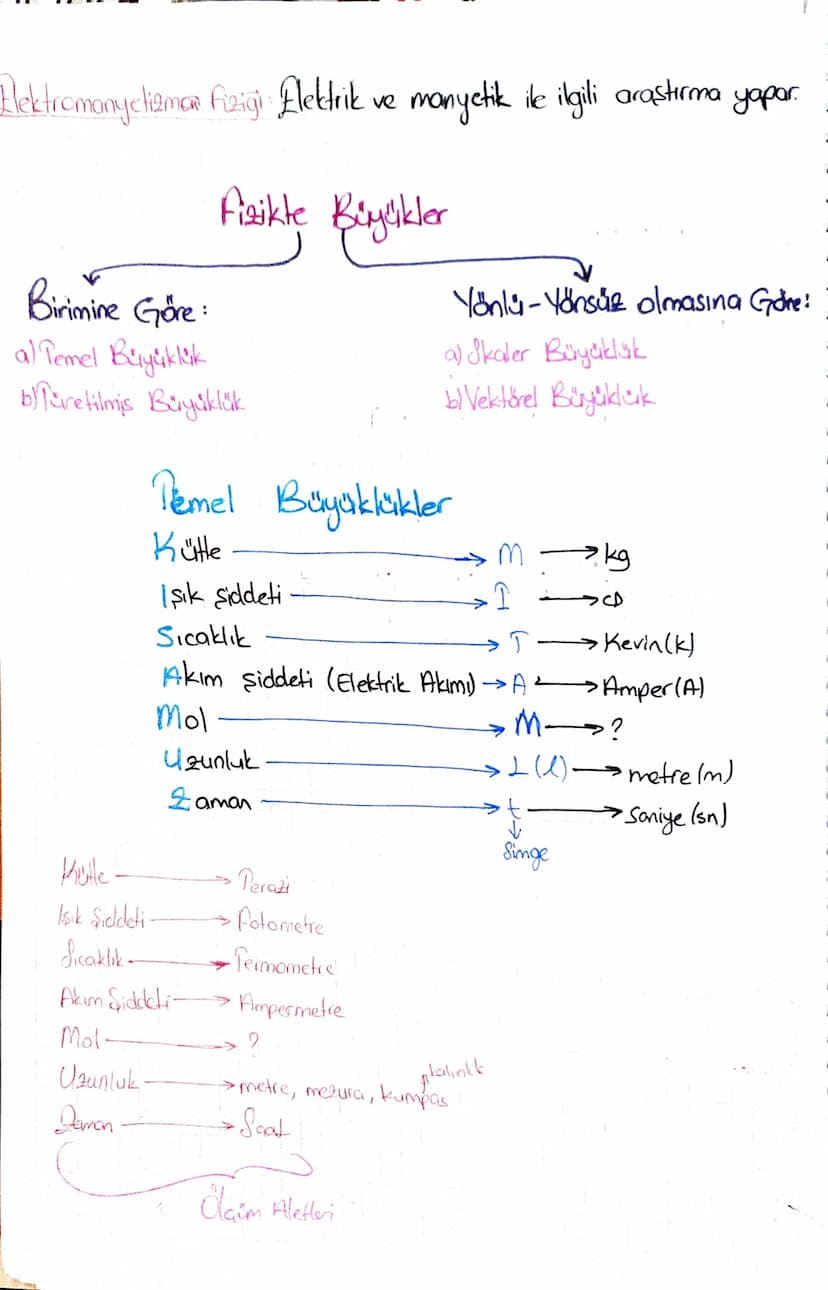 Elektromanyetizma Fiziği: Elektrik ve manyetik ile ilgili araştırma yapar.
Fizikte Büyükler
Birimine Göre:
a) Temel Büyüklük
b) Türetilmiş Büyüklük
Yönlü-Yönsüz olmasına Göre:
a) Skaler Büyüklük
b) Vektörel Büyüklük
Temel Büyüklükler
Kütle → m → kg
Işık şiddeti → I → CD
Sıcaklık → T → Kevin(K)
Akım şiddeti (Elektrik Akımı) → A → Amper(A)
Mol → M → ?
Uzunluk → L(l) → metre(m)
Zaman → t → Saniye(sn)
Simge
Kütle → Terazi
Işık Şiddeti → Fotometre
Sıcaklık → Termometre
Akım Şiddeti → Ampermetre
Mol → ?
Uzunluk → metre, mezura, kumpas
kalınlık
Zaman → Saat
Ölçüm Aletleri